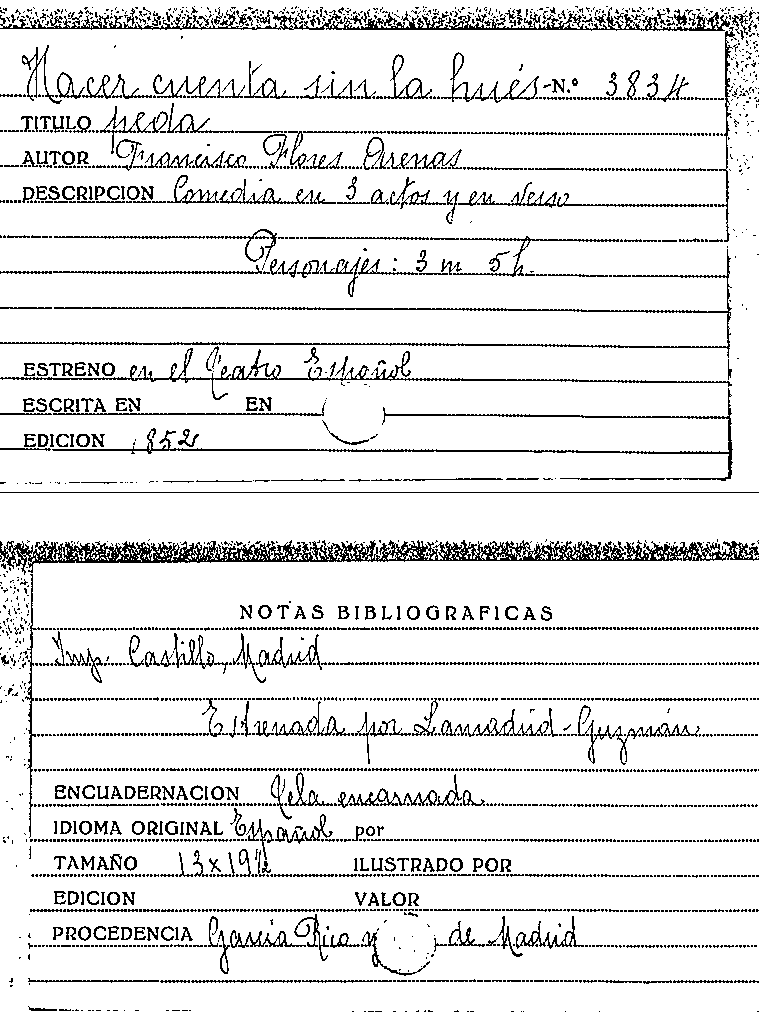 Hacer cuenta sin la hués- N.º 3834
TITULO peda
AUTOR Francisco Flores Arenas
DESCRIPCION Comedia en 3 actos y en verso
Personajes: 3 m 5 h.
ESTRENO en el Teatro Español
ESCRITA EN EN
EDICION 1852
NOTAS BIBLIOGRAFICAS
Imp. Castillo, Madrid
Estrenada por Lamadrid-Guzmán.
ENCUADERNACION Tela encarnada
IDIOMA ORIGINAL Español por
TAMAÑO 13x19½ ILUSTRADO POR
EDICION VALOR
PROCEDENCIA García Rico y de Madrid